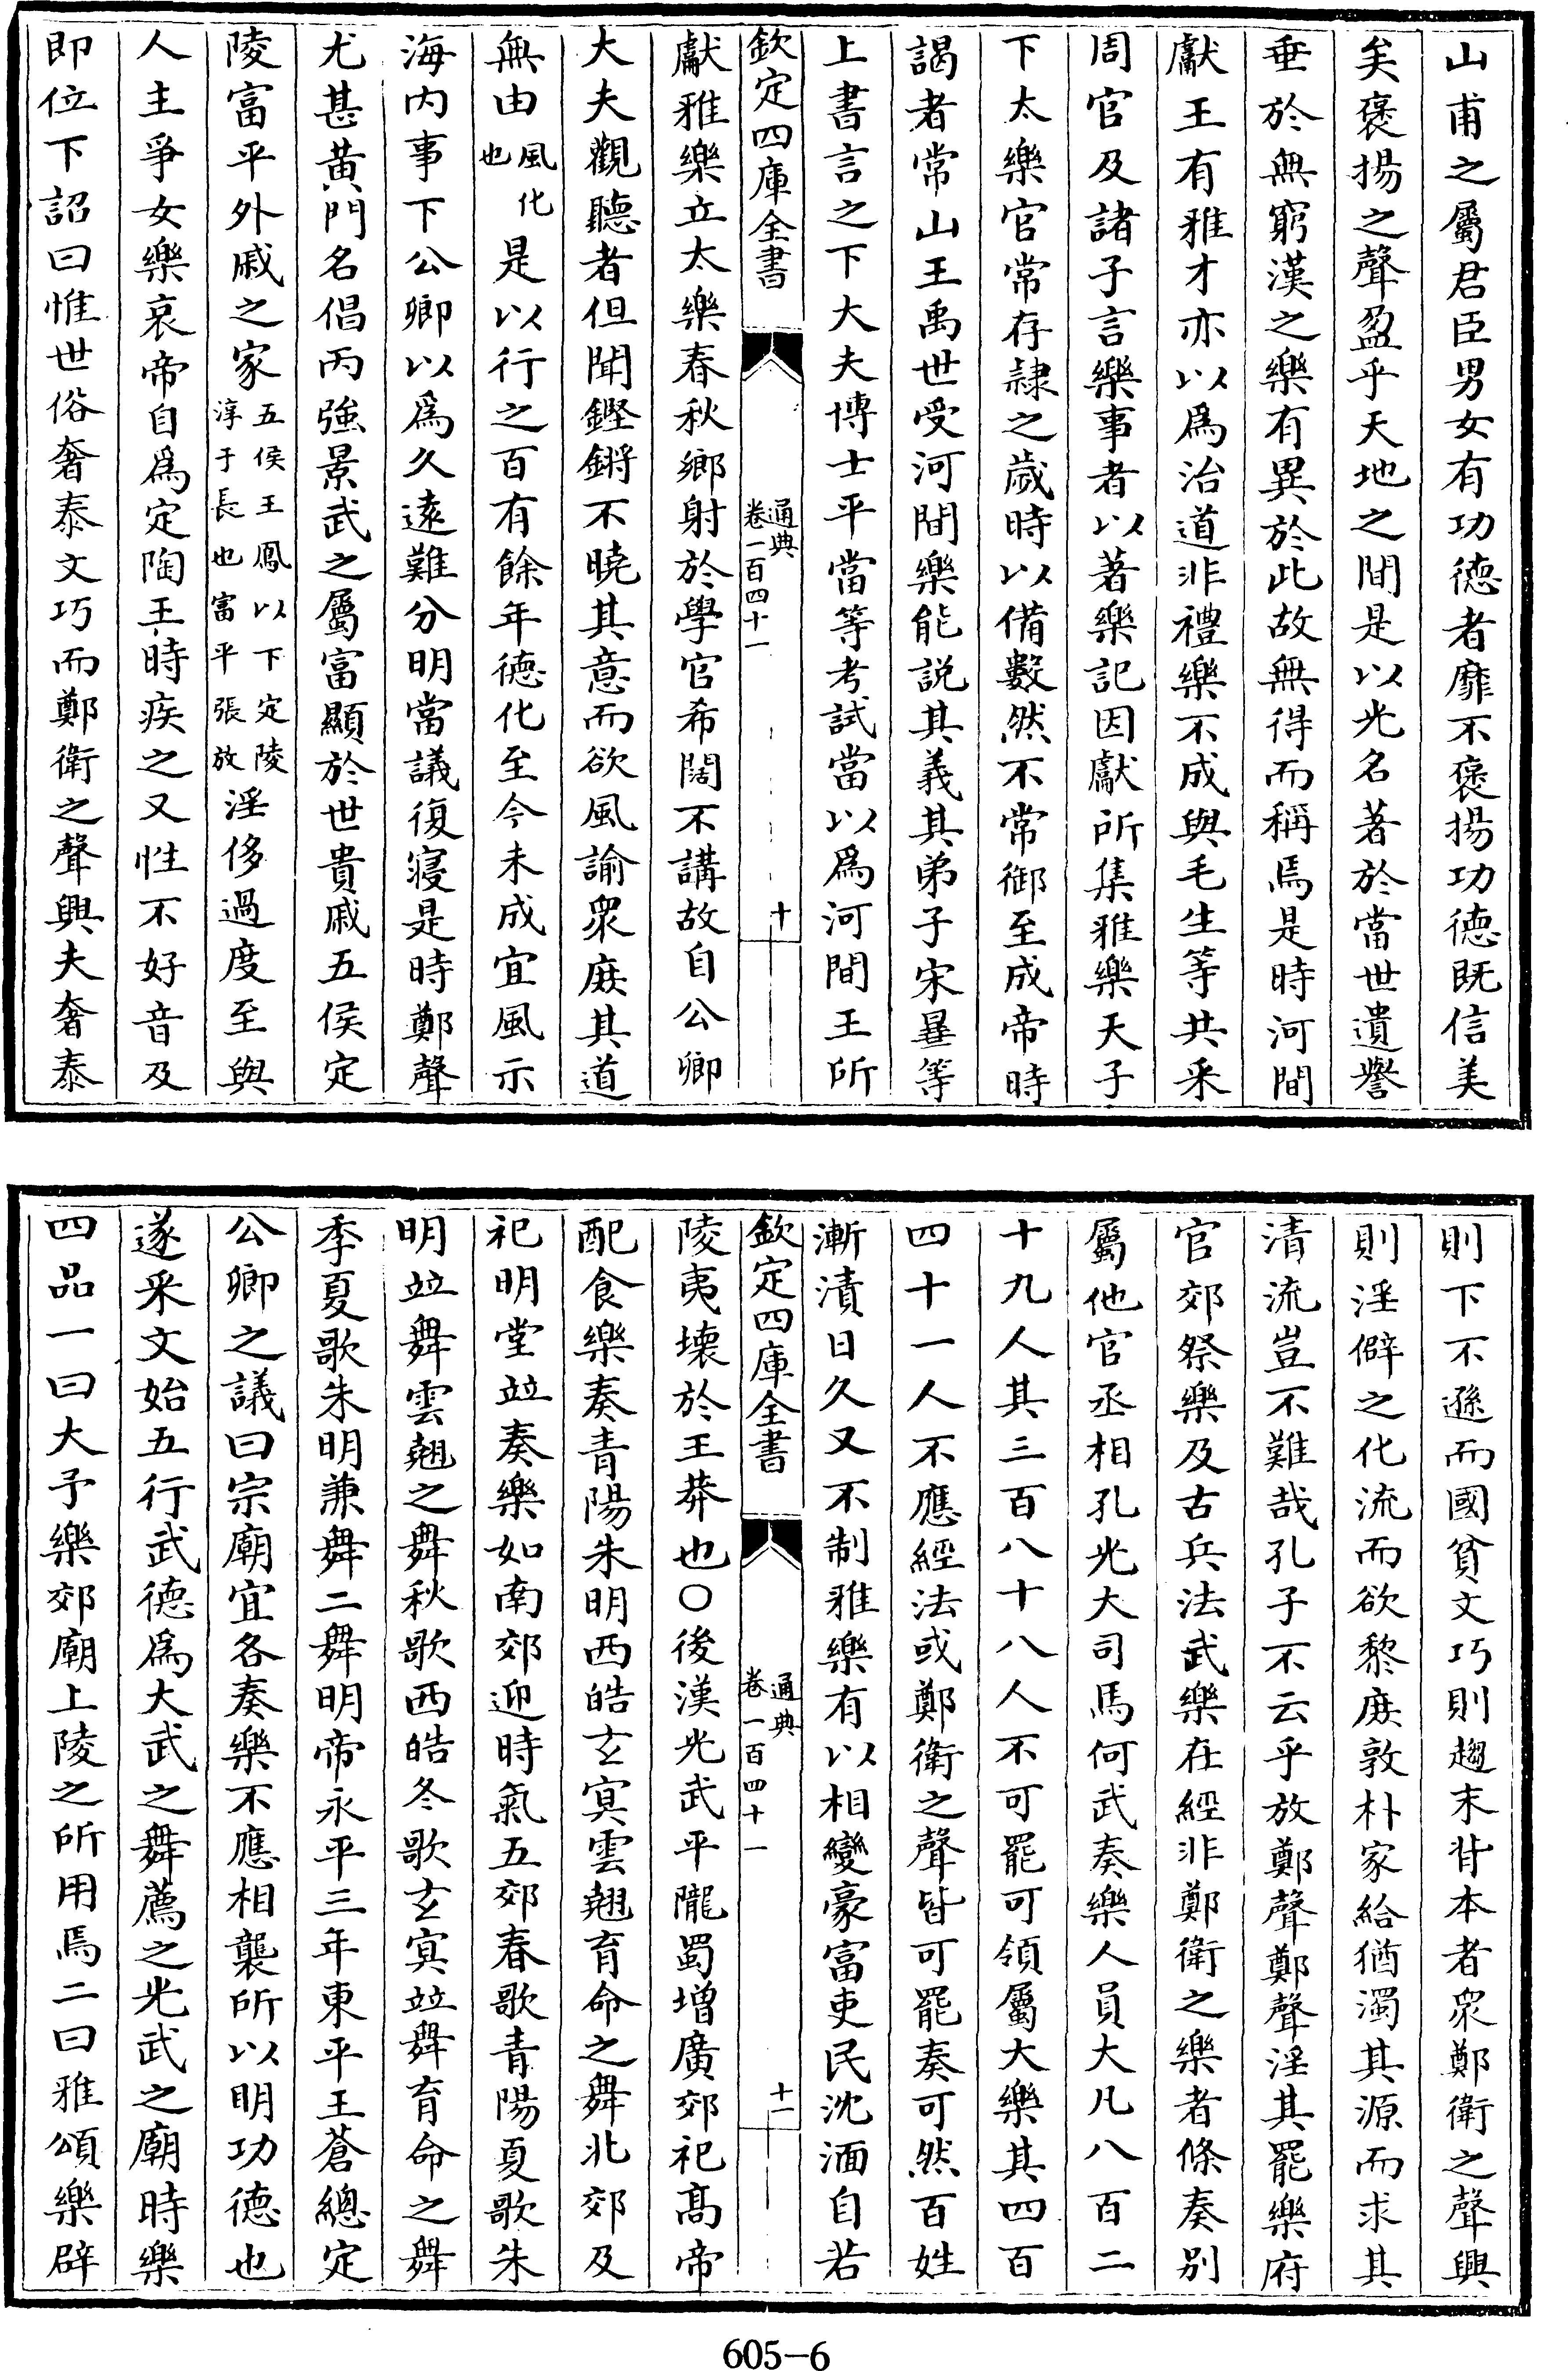 山甫之屬君臣男女有功德者靡不襃揚功德既信美
矣襃揚之聲盈乎天地之間是以光名著於當世遺譽
垂於無窮漢之樂有異於此故無得而稱焉是時河間
獻王有雅才亦以為治道非禮樂不成與毛生等共采
周官及諸子言樂事者以著樂記因獻所集雅樂天子
下太樂官常存隷之歲時以備數然不常御至成帝時
謁者常山王禹世受河間樂能説其義其弟子宋㬥等
上書言之下大夫博士平當等考試當以為河間王所
欽定四庫全書 通典 卷一百四十一 十
獻雅樂立太樂春秋鄉射於學官希闊不講故自公卿
大夫觀聽者但聞鏗鏘不曉其意而欲風諭衆庶其道
無由風化也是以行之百有餘年徳化至今未成宜風示
海内事下公卿以為久逺難分明當議復寢是時鄭聲
尤甚黄門名倡丙強景武之屬富顯於世貴戚五侯定
陵富平外戚之家五侯王鳳以下定陵淳于長也富平張放淫侈過度至與
人主爭女樂哀帝自為定陶王時疾之又性不好音及
即位下詔曰惟世俗奢泰文巧而鄭衛之聲興夫奢泰
則下不遜而國貧文巧則趨末背本者衆鄭衛之聲興
則淫僻之化流而欲黎庶敦朴家給猶濁其源而求其
清流豈不難哉孔子不云乎放鄭聲鄭聲淫其罷樂府
官郊祭樂及古兵法武樂在經非鄭衛之樂者條奏别
屬他官丞相孔光大司馬何武奏樂人員大凡八百二
十九人其三百八十八人不可罷可領屬大樂其四百
四十一人不應經法或鄭衛之聲皆可罷奏可然百姓
漸漬日久又不制雅樂有以相變豪富吏民沈湎自若
欽定四庫全書 通典 卷一百四十一 十一
陵夷壊於王莽也〇後漢光武平隴蜀増廣郊祀髙帝
配食樂奏青陽朱明西皓玄冥雲翹育命之舞北郊及
祀明堂竝奏樂如南郊迎時氣五郊春歌青陽夏歌朱
明竝舞雲翹之舞秋歌西皓冬歌玄冥竝舞育命之舞
季夏歌朱明兼舞二舞明帝永平三年東平王蒼總定
公卿之議曰宗廟宜各奏樂不應相襲所以明功德也
遂采文始五行武德為大武之舞薦之光武之廟時樂
四品一曰大予樂郊廟上陵之所用焉二曰雅頌樂辟
605-6